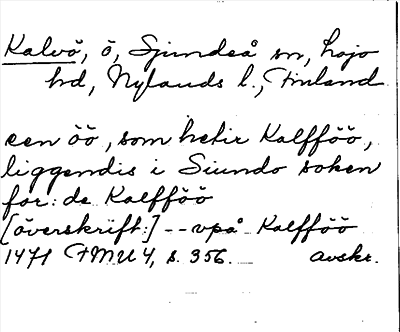 Kalvö, ö, Sjundeå sn, Lojo
hd, Nylands l., Finland
een öö, som hetir Kalfföö,
liggendis i Siundo soken
for: de Kalfföö
[överskrift:] -- vpå Kalfföö
1471 FMU 4, s. 356. avskr.